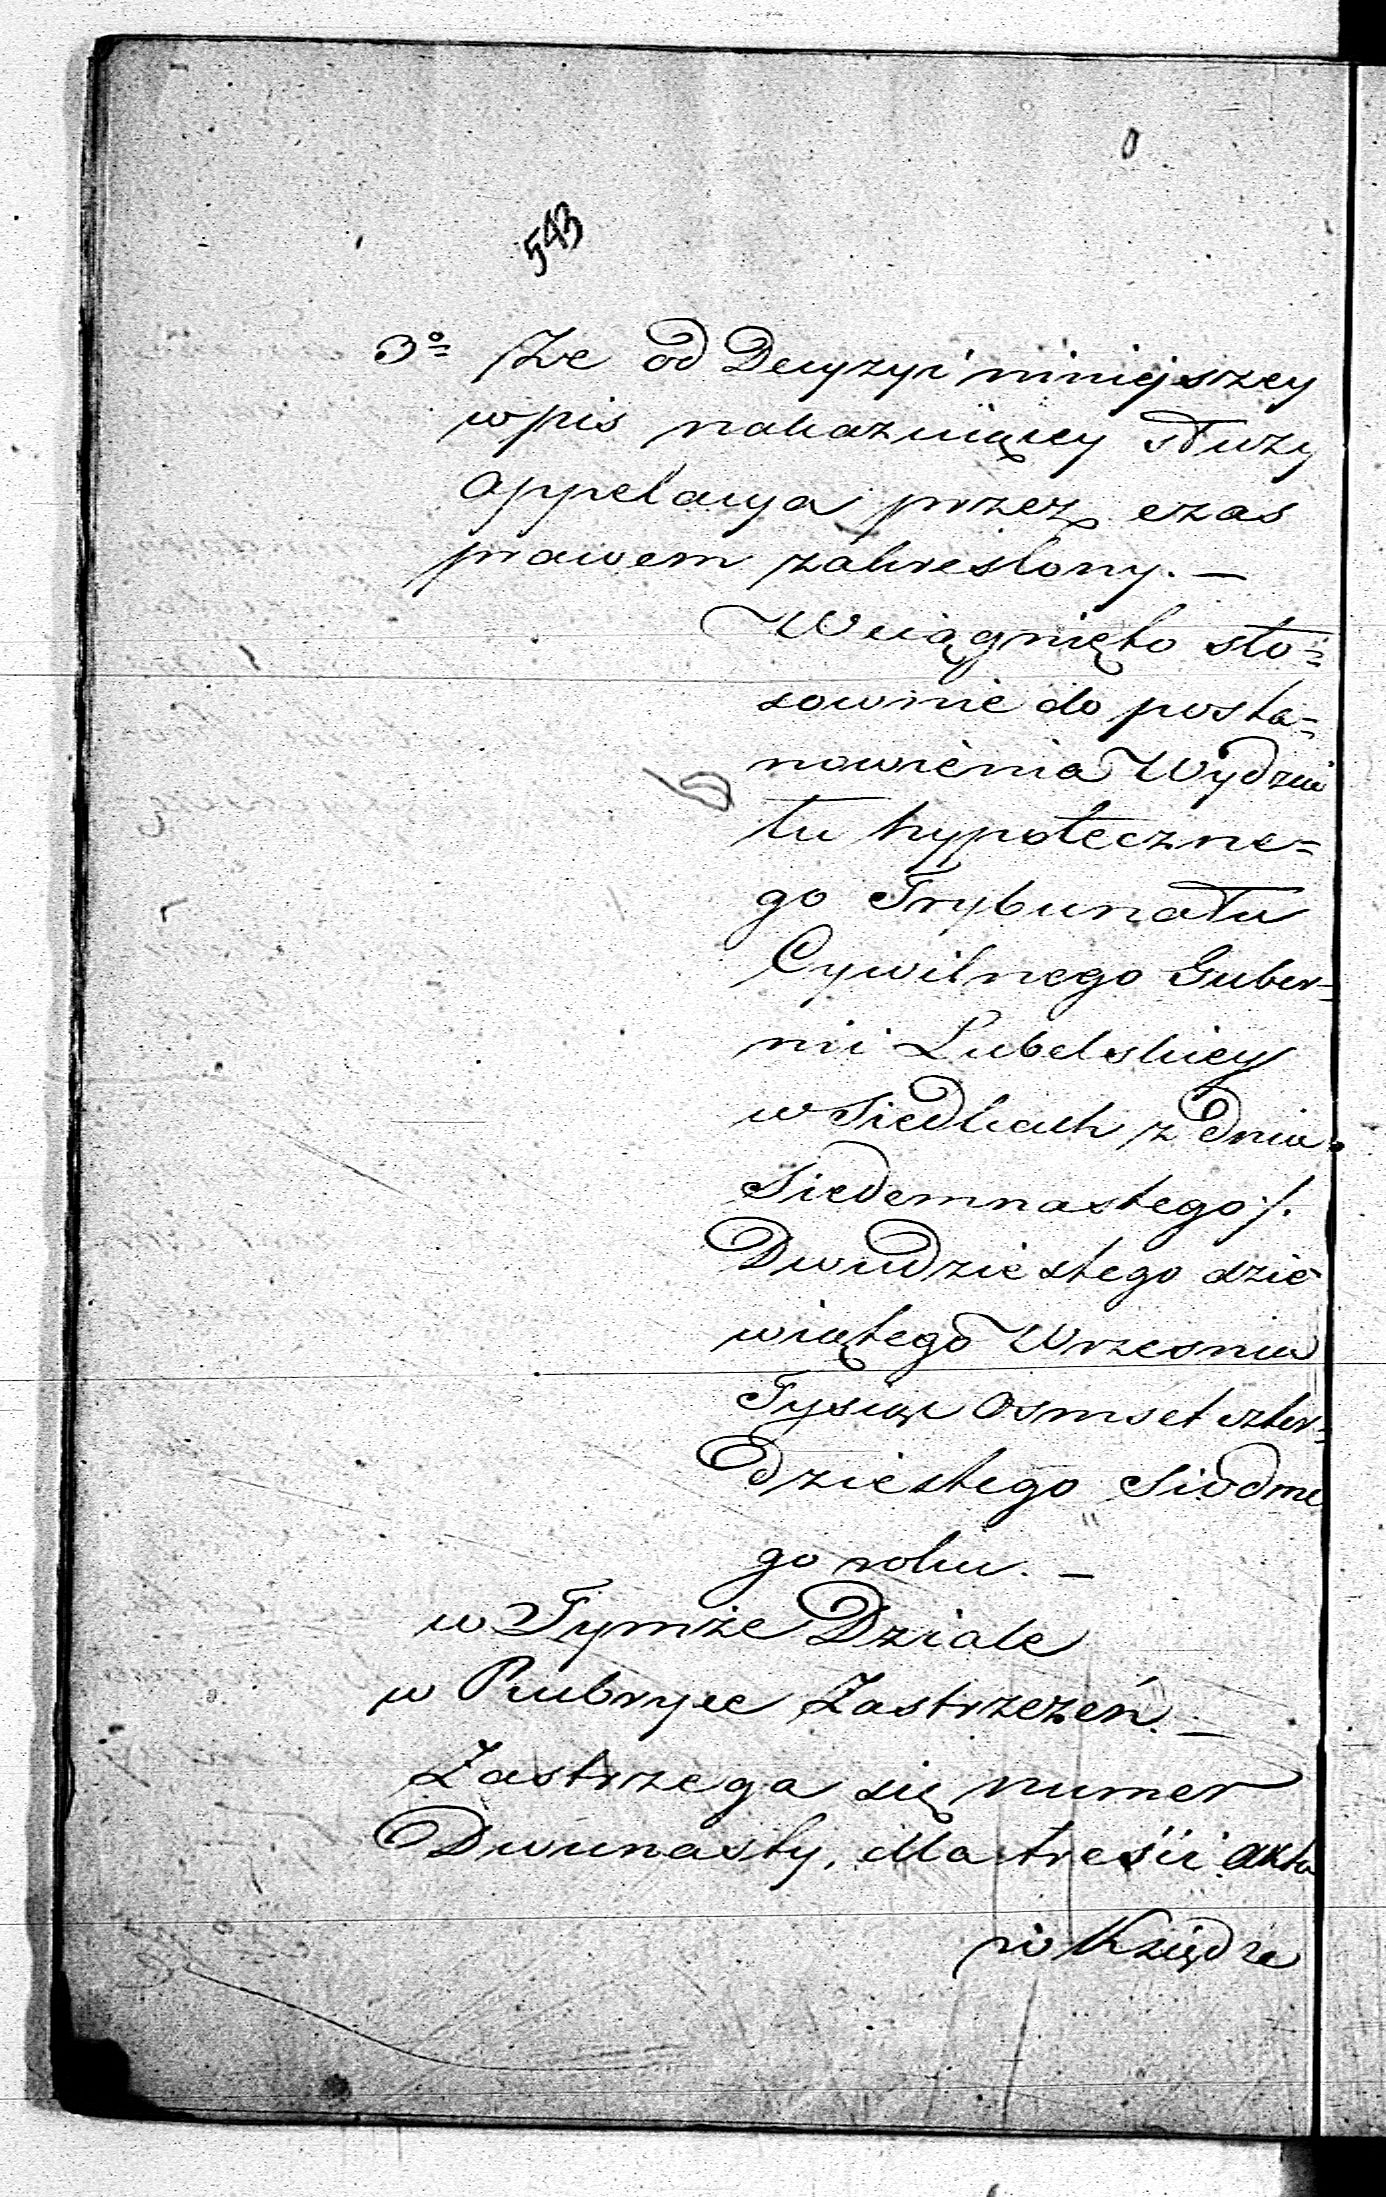 543
3o Że od Decyzyi ninieiszey
wpis nakazuiącey służy
appelacya przez czas
prawem zakreslony. —
Wciągnięto sto=
sownie do posta=
nowienia Wydzia
łu hypoteczne=
go Trybunału
Cywilnego Guber=
nii Lubelskiey
w Siedlcach z dnia
Siedemnastego /.
Dwudziestego dzie
wiątego Wrzesnia
Tysiąc osmset czter=
dziestego Siodme
go roku. —
w Tymże Dziale
w Rubryce Zastrzeżeń. —
Zastrzega się numer
Dwunasty, dla treści akta
w Księdze